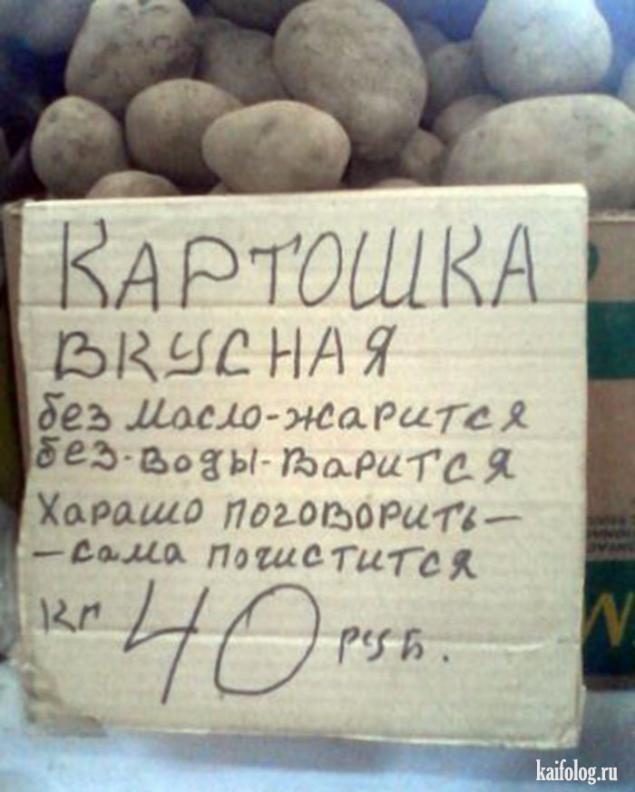 КАРТОШКА
ВКУСНАЯ
без масло-жарится
без-воды-варится
Харашо поговорить-
-сама почистится
кг 40 руб.
kaifolog.ru